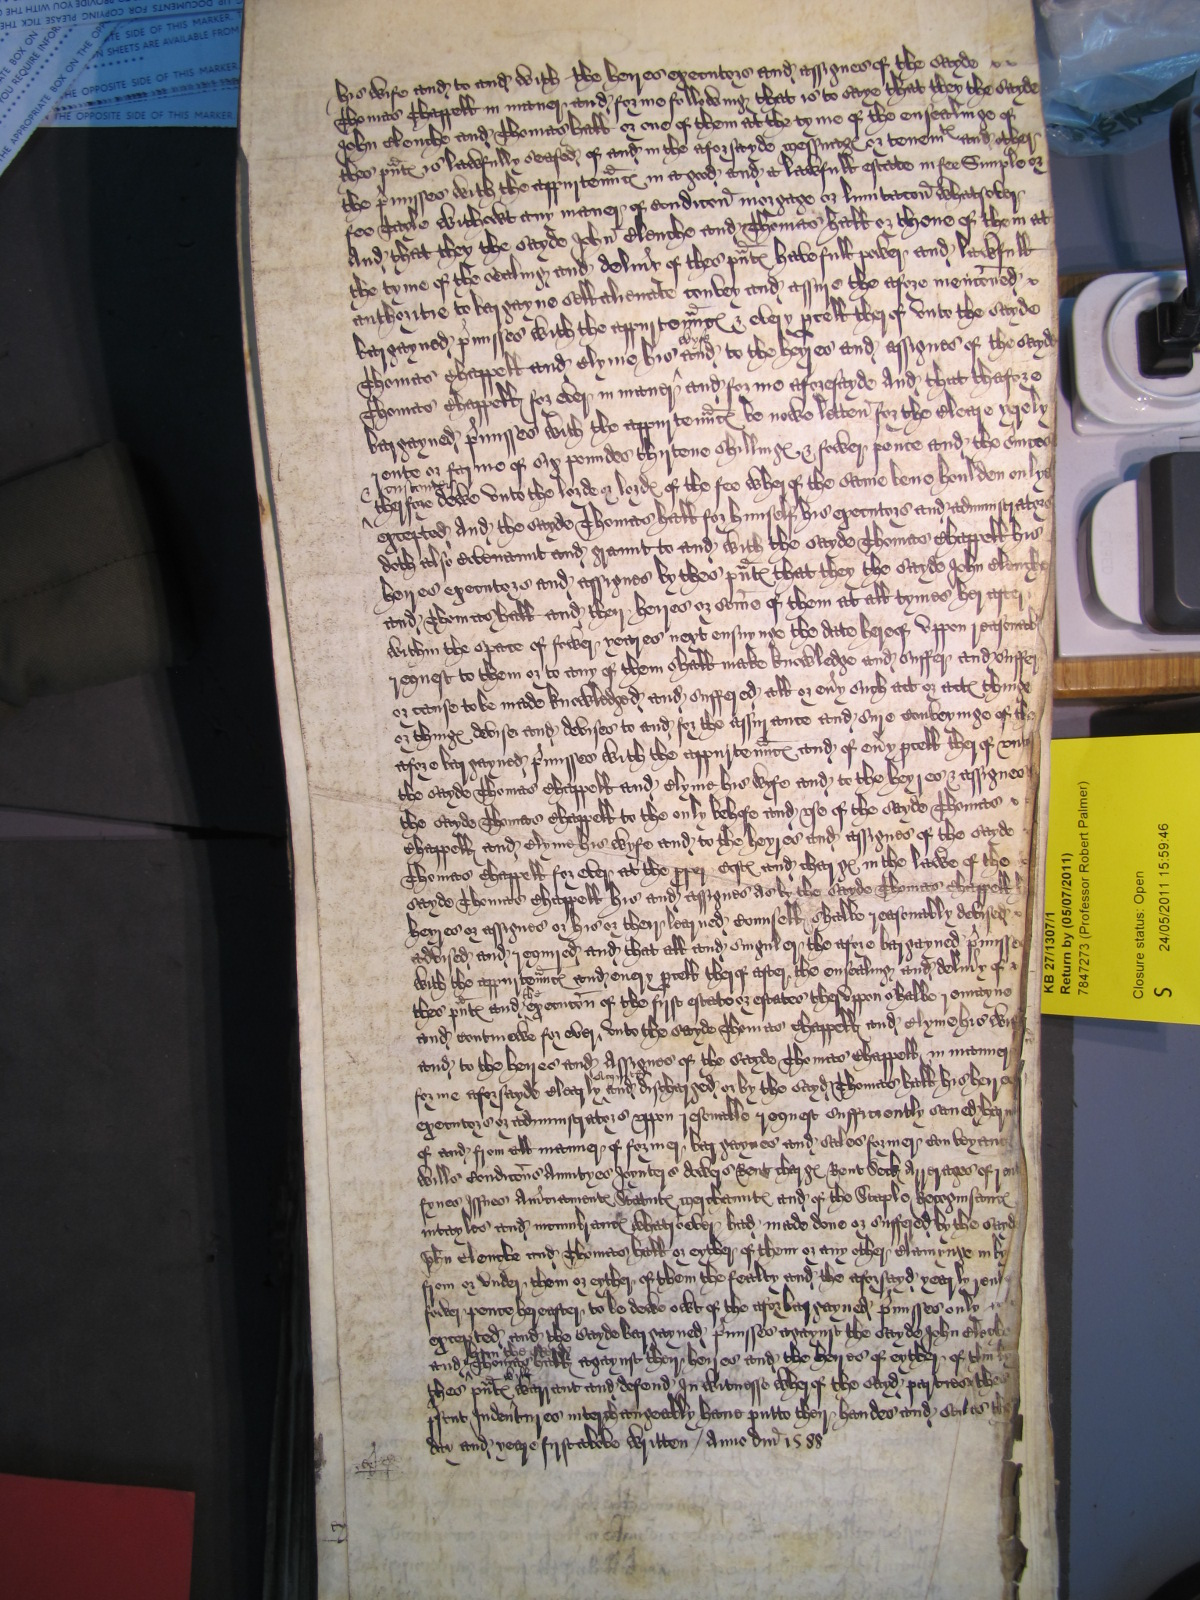 his wife and to and with the heyres executors and assignes of the sayde
Thomas Chappell in maner and forme followinge that is to saye that they the sayde
John Clenche and Thomas hall or one of them at the tyme of the ensealinge of
thes pñtℯ is lawfully seased of and in the aforsayde messuage or tenemtℯ and other
the p̃misses with the appurtennc̃ℯ in a good and a lawfull estate in fee Simple or
fee Tayle without any maner of condicon̄ morgage or limitacon̄ whatsoever
And that they the sayde John Clenche and Thomas hall or thone of them at
the tyme of the sealinge and deliũy of thes pñtℯ have full power and lawfull
authoritie to bargayne sell alienate convey and assure the afore mencōned
bargayned p̃misses with the appurtennc̃ℯ & every pcell therof unto the sayde
Thomas Chappell and Elyne his wyfe and to the heyres and assignes of the sayde
Thomas Chappell for ever in maner and forme aforesayde And that thafore
bargayned p̃misses with the appurtennc̃ℯ be nowe letten for the cleare yerely
rente or farme of six poundes thirtene shillingℯ & fower pence and the
therfore dewe unto the lorde or lordℯ of the fee wherof the same bene houlden only
excepted And the sayde Thomas hall for himself his executors and administrators
doth also covenaunt and graunt to and with the sayde Thomas Chappell his
heyres executors and assignes by thes pñtℯ that they the sayde John Clenche
and Thomas hall and ther heyres or some of them at all tymes herafter
within the space of fower yeares next ensuynge the date herof uppon reasonable
request to them or to any of them shall make knowledge and suffer and
or cause to be made knowledged and suffered all or eũy such act or actℯ thinge
or thingℯ devise and devises to and for the assurance and sure conveyinge of the
afore bargayned p̃misses with the appurtennc̃ℯ and of eũy pcell therof unto
the sayde Thomas Chappell and Elyne his wyfe and to the heyres & assignes
the sayde Thomas Chappell to the only behofe and use of the sayde Thomas
Chappell and Elyne his wyfe and to the heyres and assignes of the sayde
Thomas Chappell for ever at the pper costℯ and chargℯ in the lawe of the
sayde Thomas Chappell his and assignes as by the sayde Thomas Chappell
heyres or assignes or his or ther learned counsell shalbe reasonably devised
advised and required and that all and singuler the afore bargayned p̃misses
with the appurtennc̃ℯ and every pcell therof after the ensealinge and deliũy of
thes pñtℯ and the execucōn of the first estate or estates theruppon shalbe remayne
and continewe for ever unto the sayde Thomas Chappell and Elyne his wife
and to the heyres and Assignes of the sayde Thomas Chappell in manner
forme aforsayde clearly and discharged or by the sayd Thomas hall his heyres
executors or administrators uppon resonable request sufficiently saved
of and from all manner of former bargaynes and sales former conveyance
wills Condicōns Annityes Joynters dowers Rent chargℯ Rent Seck Arrerages of rent
fynes Issues Amerciamentℯ Statutℯ merchauntℯ and of the Staple Recognisauncℯ
intayles and incumbrancℯ whatsoever had made done or suffered by the sayd
John Clenche and Thomas hall or eyther of them or any other claymynge in by
from or under them or eyther of them the fealty and the aforsayd yearly rent
fower pence hereafter to be dewe owt of the afor bargayned p̃misses only
excepted and the sayde bargayned p̃misses agaynst the sayde John Clenche
and Thomas hall agaynst ther heyres and the heyres of eyther of them by
thes pñtℯ warrant and defend In witnesse wherof the sayd parties thes
psent Indentures interchangeably have putto their handes and seales the
day and yeare first above written / Anno dm̄ 1588
PLEASE TICK THE
APPROPRIATE BOX ON THE OPPOSITE SIDE OF THIS MARKER.
SHEETS ARE AVAILABLE FROM
THE OPPOSITE SIDE OF THIS MARKER.
KB 27/1307/1
Return by (05/07/2011)
7847273 (Professor Robert Palmer)
Closure status: Open
S 24/05/2011 15:59:46